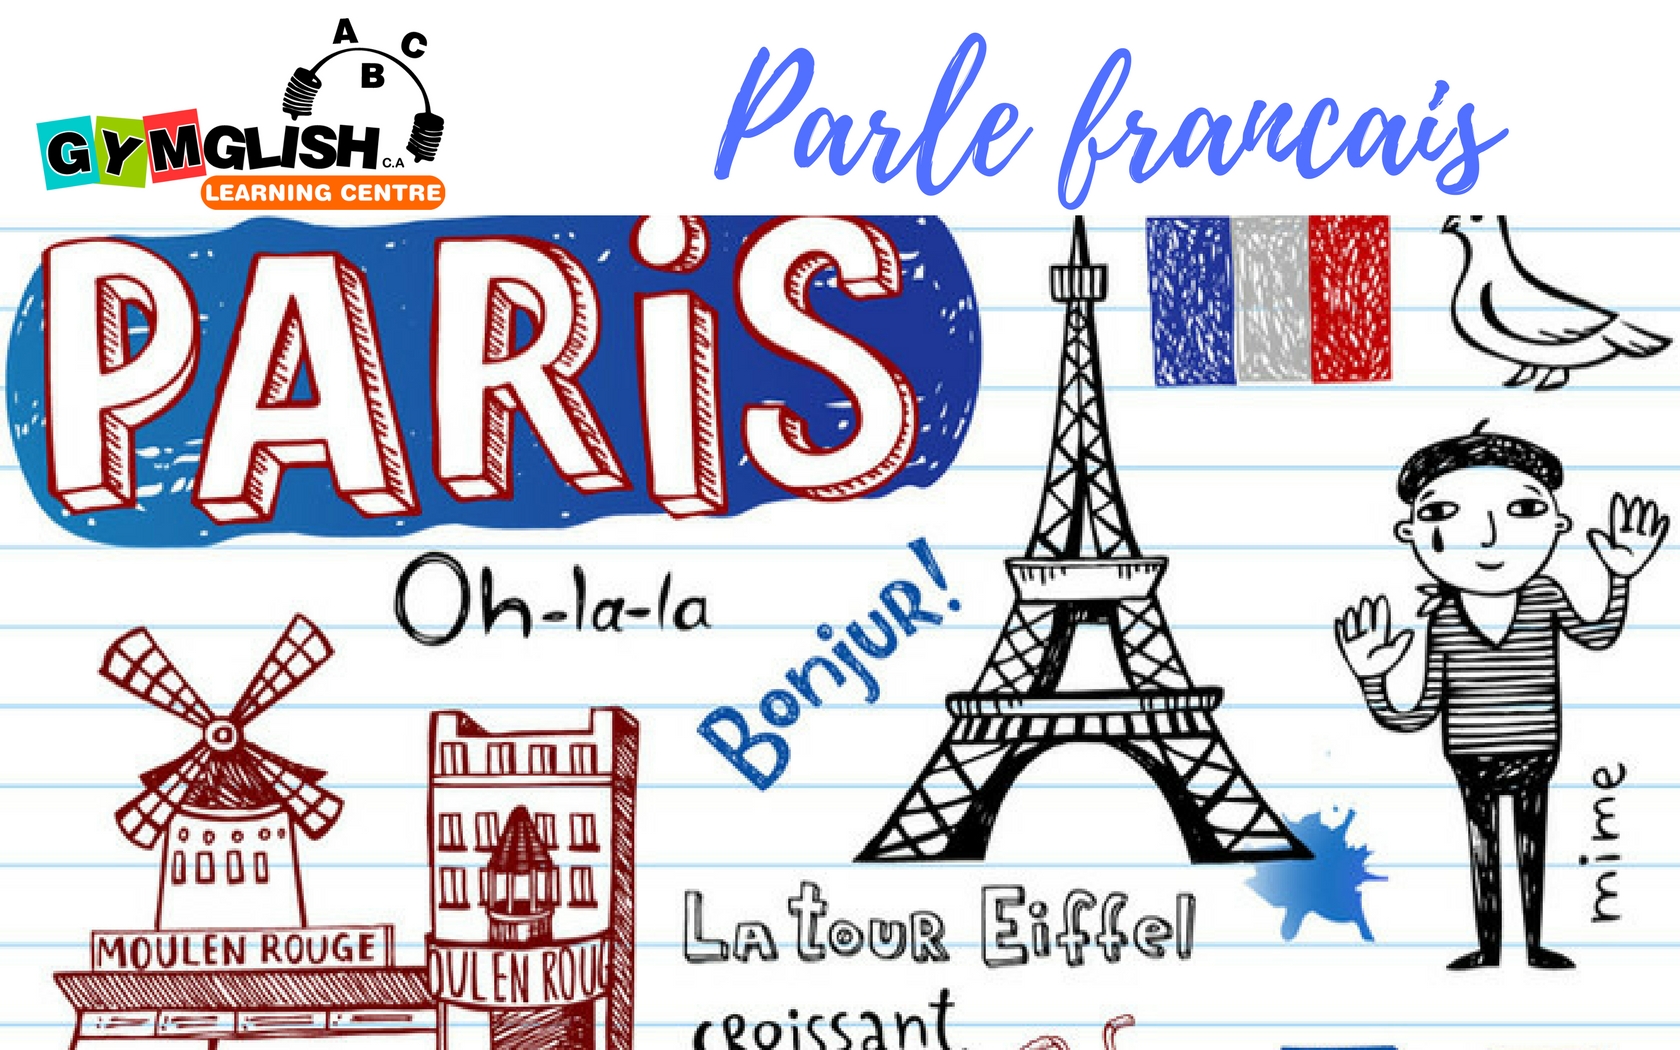 A B C
GYMGLISH C.A
LEARNING CENTRE
Parle francais
PARiS
Oh-la-la
BonjuR!
MOULEN ROUGE
OULEN ROUG
La touR Eiffel
mime
cRoissant